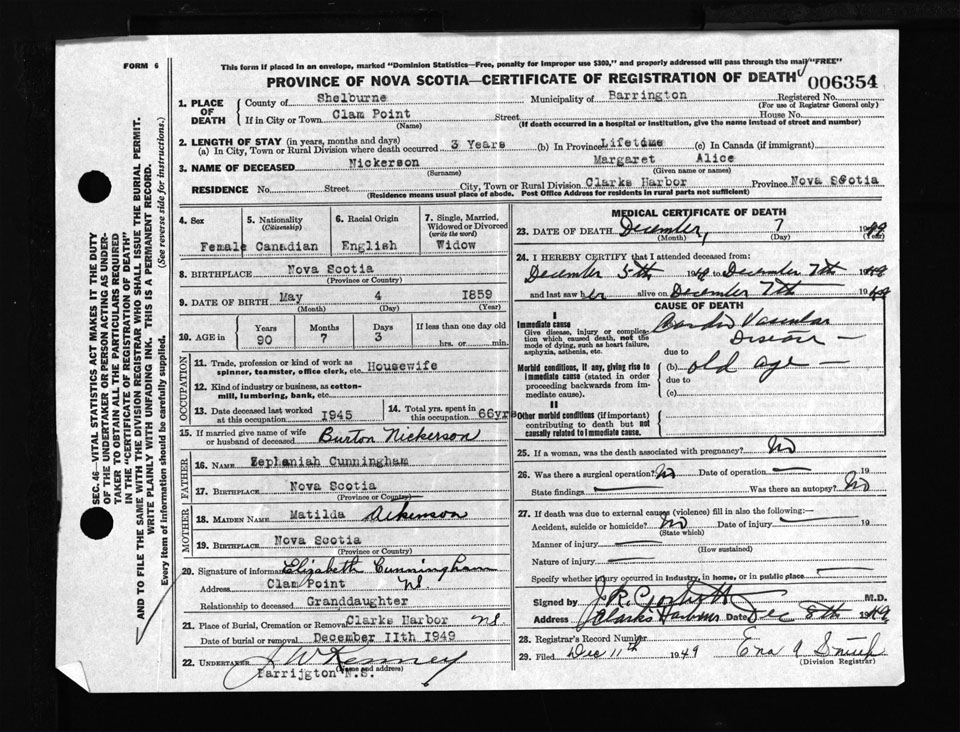 FORM 6
This form if placed in an envelope, marked "Dominion Statistics—Free, penalty for improper use $300," and properly addressed will pass through the mail "FREE"
PROVINCE OF NOVA SCOTIA—CERTIFICATE OF REGISTRATION OF DEATH
006354
1. PLACE OF DEATH
County of Shelburne Municipality of Barrington Registered No.
(For use of Registrar General only)
If in City or Town Clam Point Street House No.
(Name) (If death occurred in a hospital or institution, give the name instead of street and number)
2. LENGTH OF STAY (in years, months and days)
(a) In City, Town or Rural Division where death occurred 3 Years (b) In Province Lifetime (c) In Canada (if immigrant)
3. NAME OF DECEASED Nickerson Margaret Alice
(Surname) (Given name or names)
RESIDENCE No. Street City, Town or Rural Division Clarks Harbor Province Nova Scotia
(Residence means usual place of abode. Post Office Address for residents in rural parts not sufficient)
4. Sex Female
5. Nationality (Citizenship) Canadian
6. Racial Origin English
7. Single, Married, Widowed or Divorced (write the word) Widow
8. BIRTHPLACE Nova Scotia
(Province or Country)
9. DATE OF BIRTH May 4 1859
(Month) (Day) (Year)
10. AGE in Years 90 Months 7 Days 3 If less than one day old hrs. or min.
OCCUPATION
11. Trade, profession or kind of work as spinner, teamster, office clerk, etc. Housewife
12. Kind of industry or business, as cotton-mill, lumbering, bank, etc.
13. Date deceased last worked at this occupation 1945
14. Total yrs. spent in this occupation 66yrs
15. If married give name of wife or husband of deceased Burton Nickerson
FATHER
16. NAME Zephaniah Cunningham
17. BIRTHPLACE Nova Scotia
(Province or Country)
MOTHER
18. MAIDEN NAME Matilda Atkinson
19. BIRTHPLACE Nova Scotia
(Province or Country)
20. Signature of informant Elizabeth Cunningham
Address Clam Point NS
Relationship to deceased Granddaughter
21. Place of Burial, Cremation or Removal Clarks Harbor NS.
Date of burial or removal December 11th 1949
22. UNDERTAKER J W Kenney
(Name and address)
Parrijgton N.S.
MEDICAL CERTIFICATE OF DEATH
23. DATE OF DEATH December, 7 1949
(Month) (Day) (Year)
24. I HEREBY CERTIFY that I attended deceased from:
December 5th 1949 to December 7th 1949
and last saw her alive on December 7th 1949
CAUSE OF DEATH
I
Immediate cause
Give disease, injury or complication which caused death, not the mode of dying, such as heart failure, asphyxia, asthenia, etc.
Cardio Vascular Disease
due to
Morbid conditions, if any, giving rise to immediate cause (stated in order proceeding backwards from immediate cause).
(b) old age
due to
(c)
II
Other morbid conditions (if important) contributing to death but not causally related to immediate cause.
25. If a woman, was the death associated with pregnancy? No
26. Was there a surgical operation? No Date of operation 19
State findings Was there an autopsy? No
27. If death was due to external causes (violence) fill in also the following:—
Accident, suicide or homicide? No Date of injury 19
(State which)
Manner of injury
(How sustained)
Nature of injury
Specify whether injury occurred in industry, in home, or in public place
Signed by M.D.
Address Clarks Harbour Date Dec 8th 1949
28. Registrar's Record Number
29. Filed Dec 11th 1949 Ena A Smith
(Division Registrar)
SEC. 46—VITAL STATISTICS ACT MAKES IT THE DUTY OF THE UNDERTAKER OR PERSON ACTING AS UNDERTAKER TO OBTAIN ALL THE PARTICULARS REQUIRED IN THE "CERTIFICATE OF REGISTRATION OF DEATH" AND TO FILE THE SAME WITH THE DIVISION REGISTRAR WHO SHALL ISSUE THE BURIAL PERMIT.
WRITE PLAINLY WITH UNFADING INK. THIS IS A PERMANENT RECORD.
Every item of information should be carefully supplied. (See reverse side for instructions.)